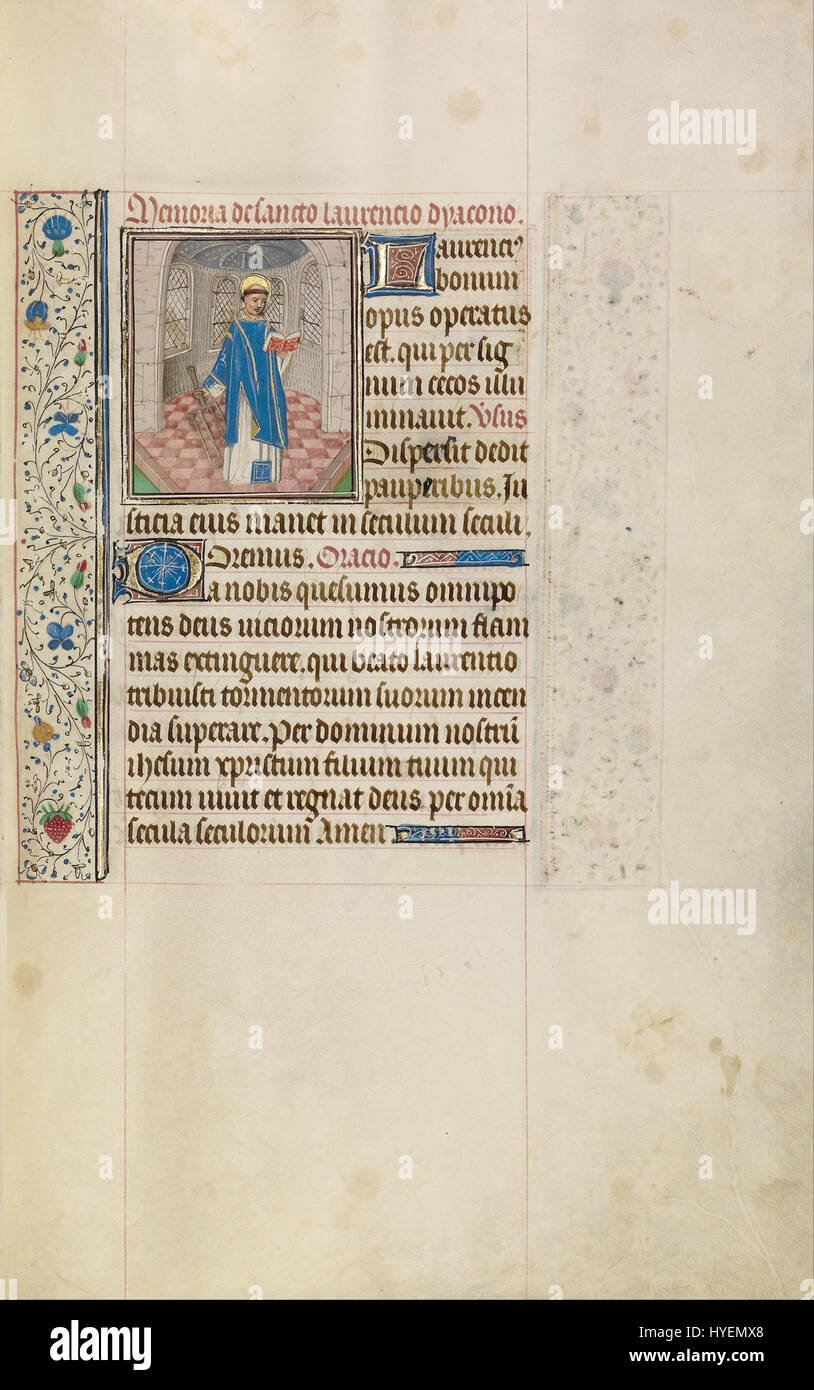 Memoria de sancto laurencio dyacono.
Laurenci⁹
bonum
opus operatus
est. qui per sig
num cecos illu
minauit. Vsus
Dispersit dedit
pauperibus. Iu
sticia eius manet in seculum seculi.
Oremus. Oracio.
Da nobis quesumus omnipo
tens deus uiciorum nostrorum flam
mas extinguere. qui beato laurentio
tribuisti tormentorum suorum incen
dia superare. Per dominum nostrū
ihesum xpristum filium tuum qui
tecum uiuit et regnat deus per om̄ia
secula seculorum Amen
alamy
alamy
alamy
a
a
a
a
a
a
a
a
a
a
alamy
Image ID: HYEMX8
www.alamy.com